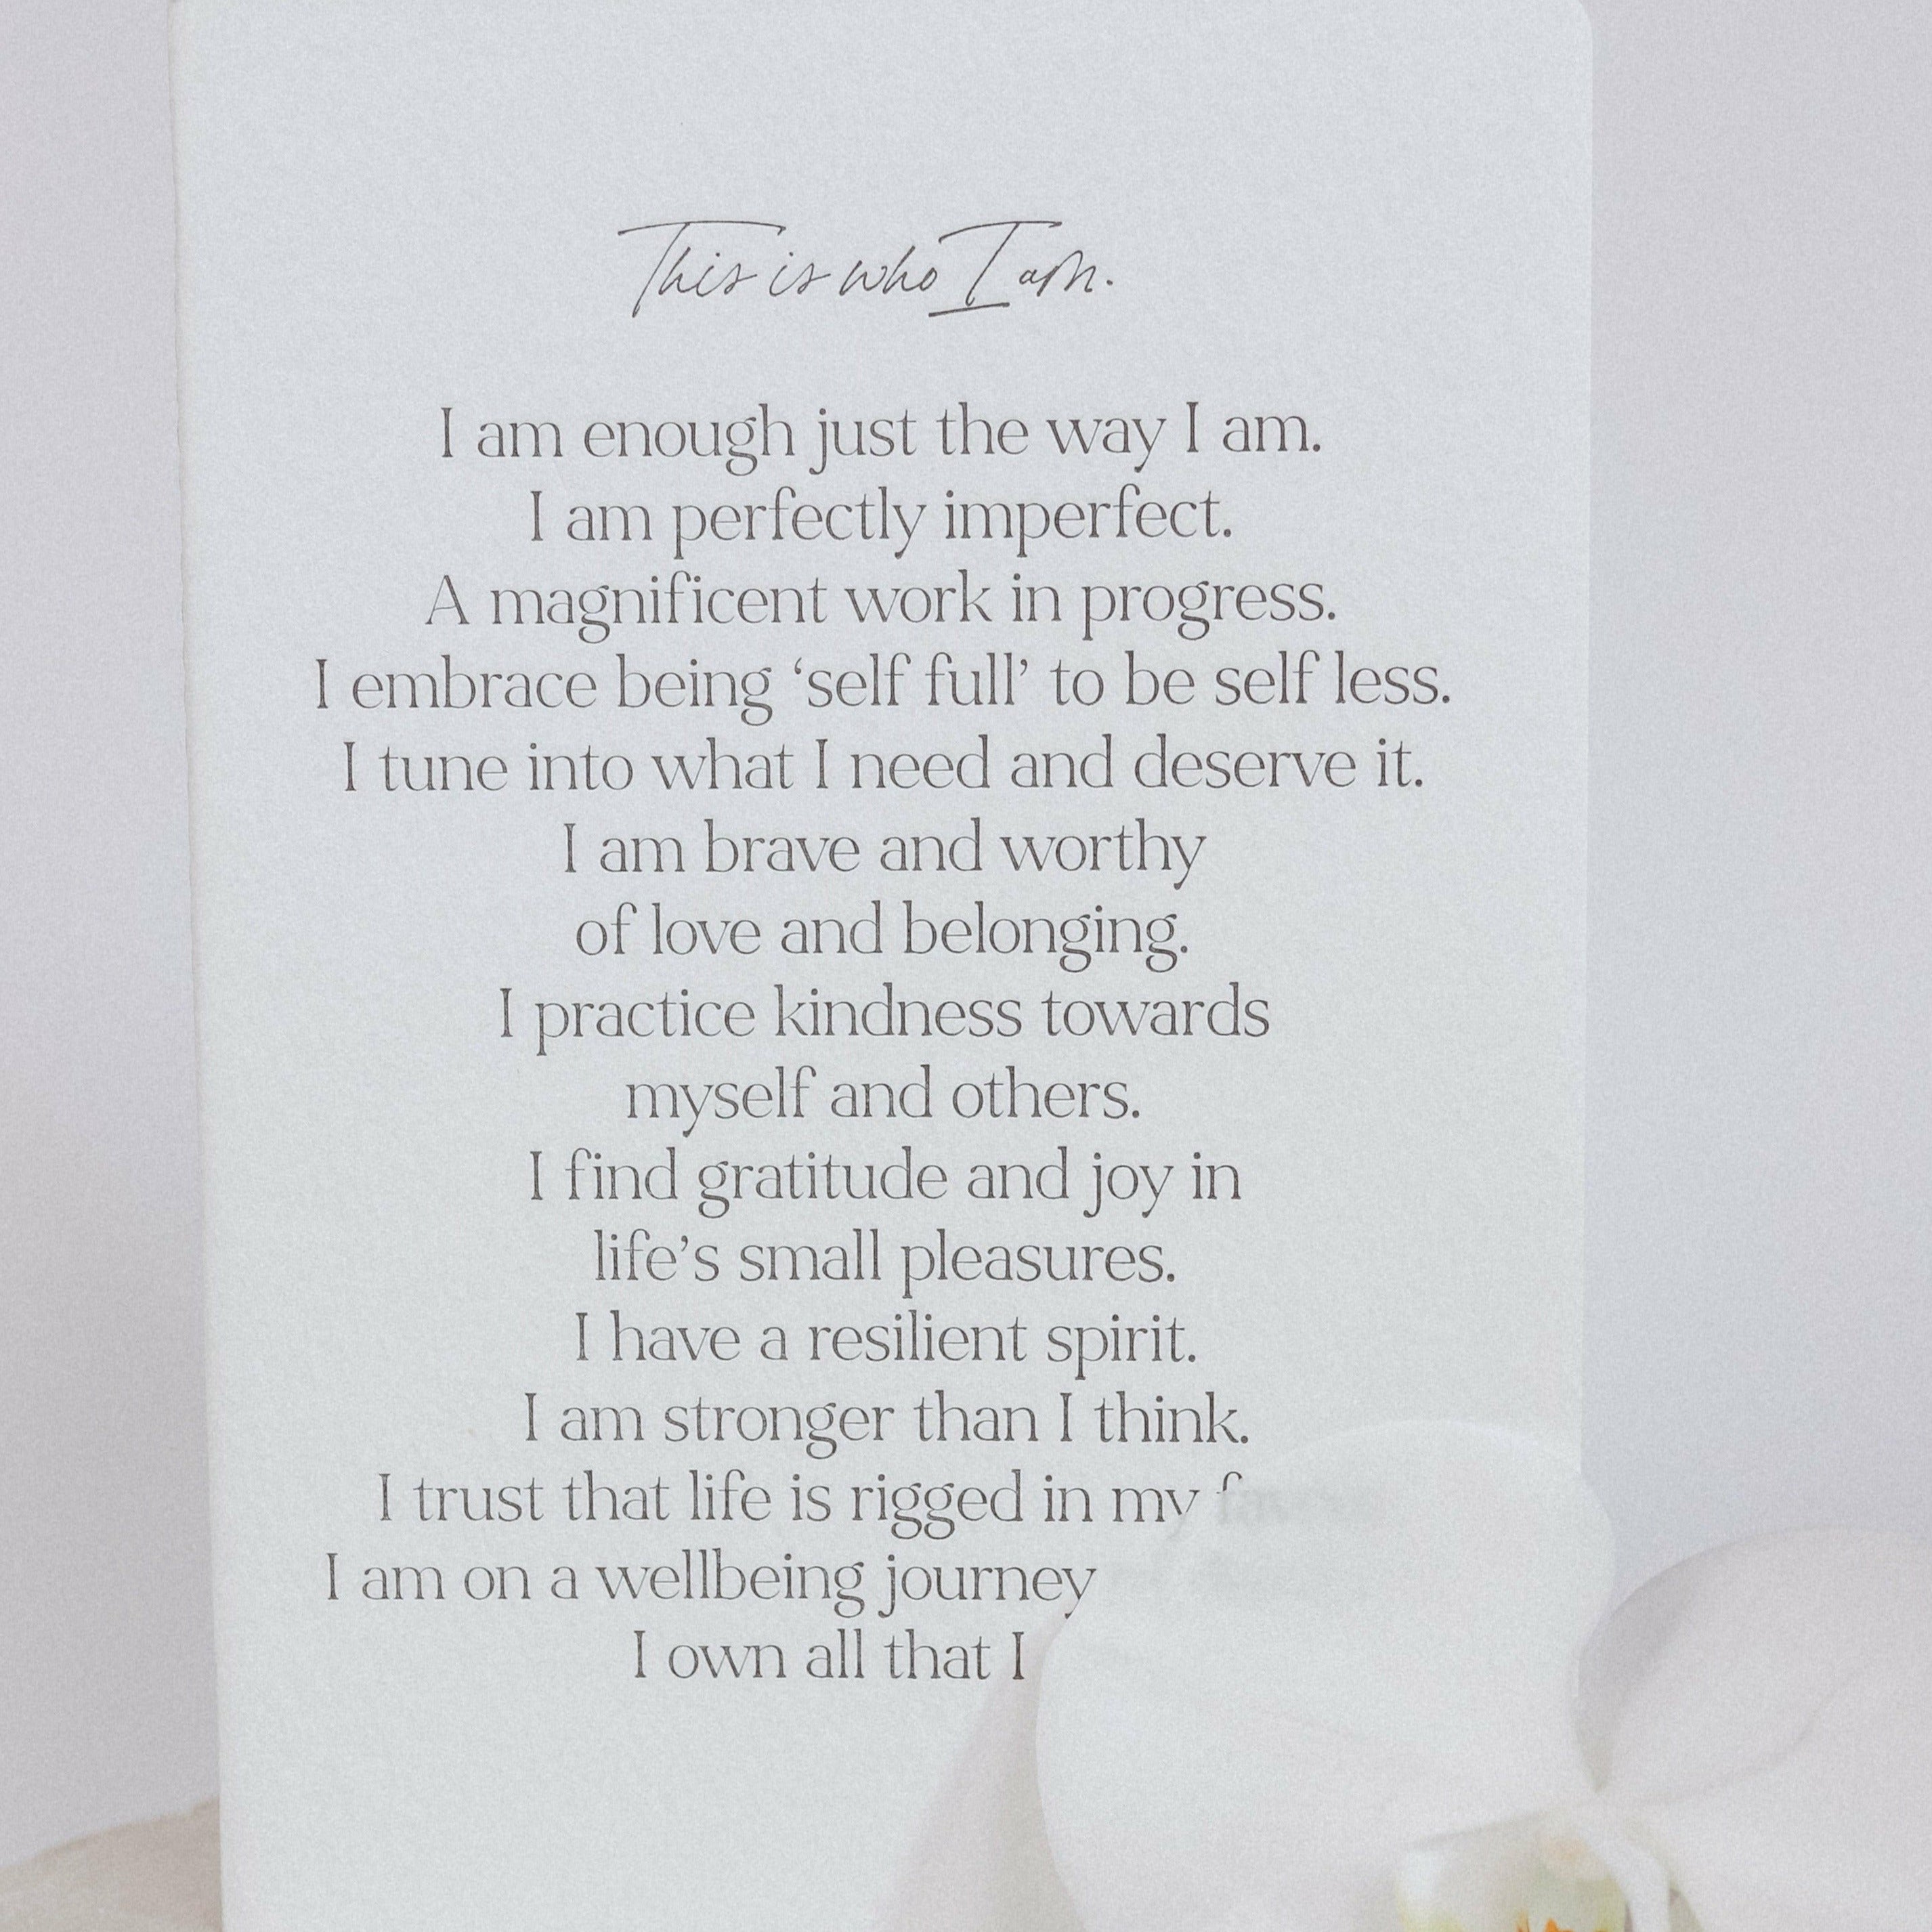 This is who I am.
I am enough just the way I am.
I am perfectly imperfect.
A magnificent work in progress.
I embrace being ‘self full’ to be self less.
I tune into what I need and deserve it.
I am brave and worthy
of love and belonging.
I practice kindness towards
myself and others.
I find gratitude and joy in
life’s small pleasures.
I have a resilient spirit.
I am stronger than I think.
I trust that life is rigged in my
I am on a wellbeing journey
I own all that I